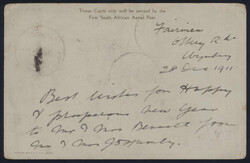 These Cards only will be carried by the
First South African Aerial Post
Ottery Rd
Wynberg
28 Dec 1911
Best wishes for Happy
& prosperous new Year
to Mr & Mrs Bennett from
Mr & Mrs